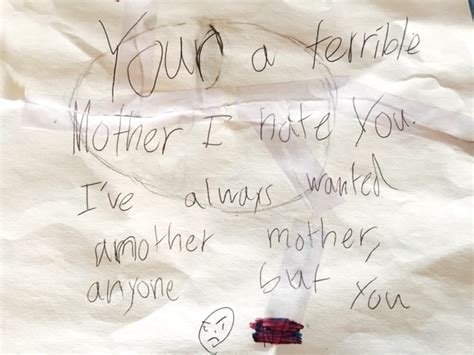 Your a terrible
Mother I hate You.
I've always wanted
amother mother,
anyone but You